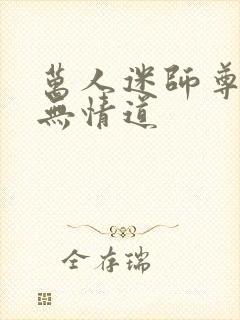 萬人迷師尊
無情道
全存瑞